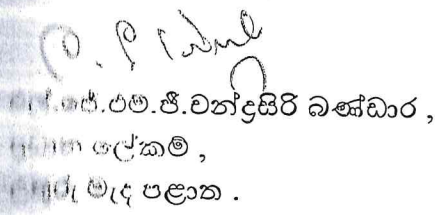 .ජේ.එම.ජී.චන්ද්‍රසිරි බණ්ඩාර ,
ලේකම් ,
මැද පළාත .